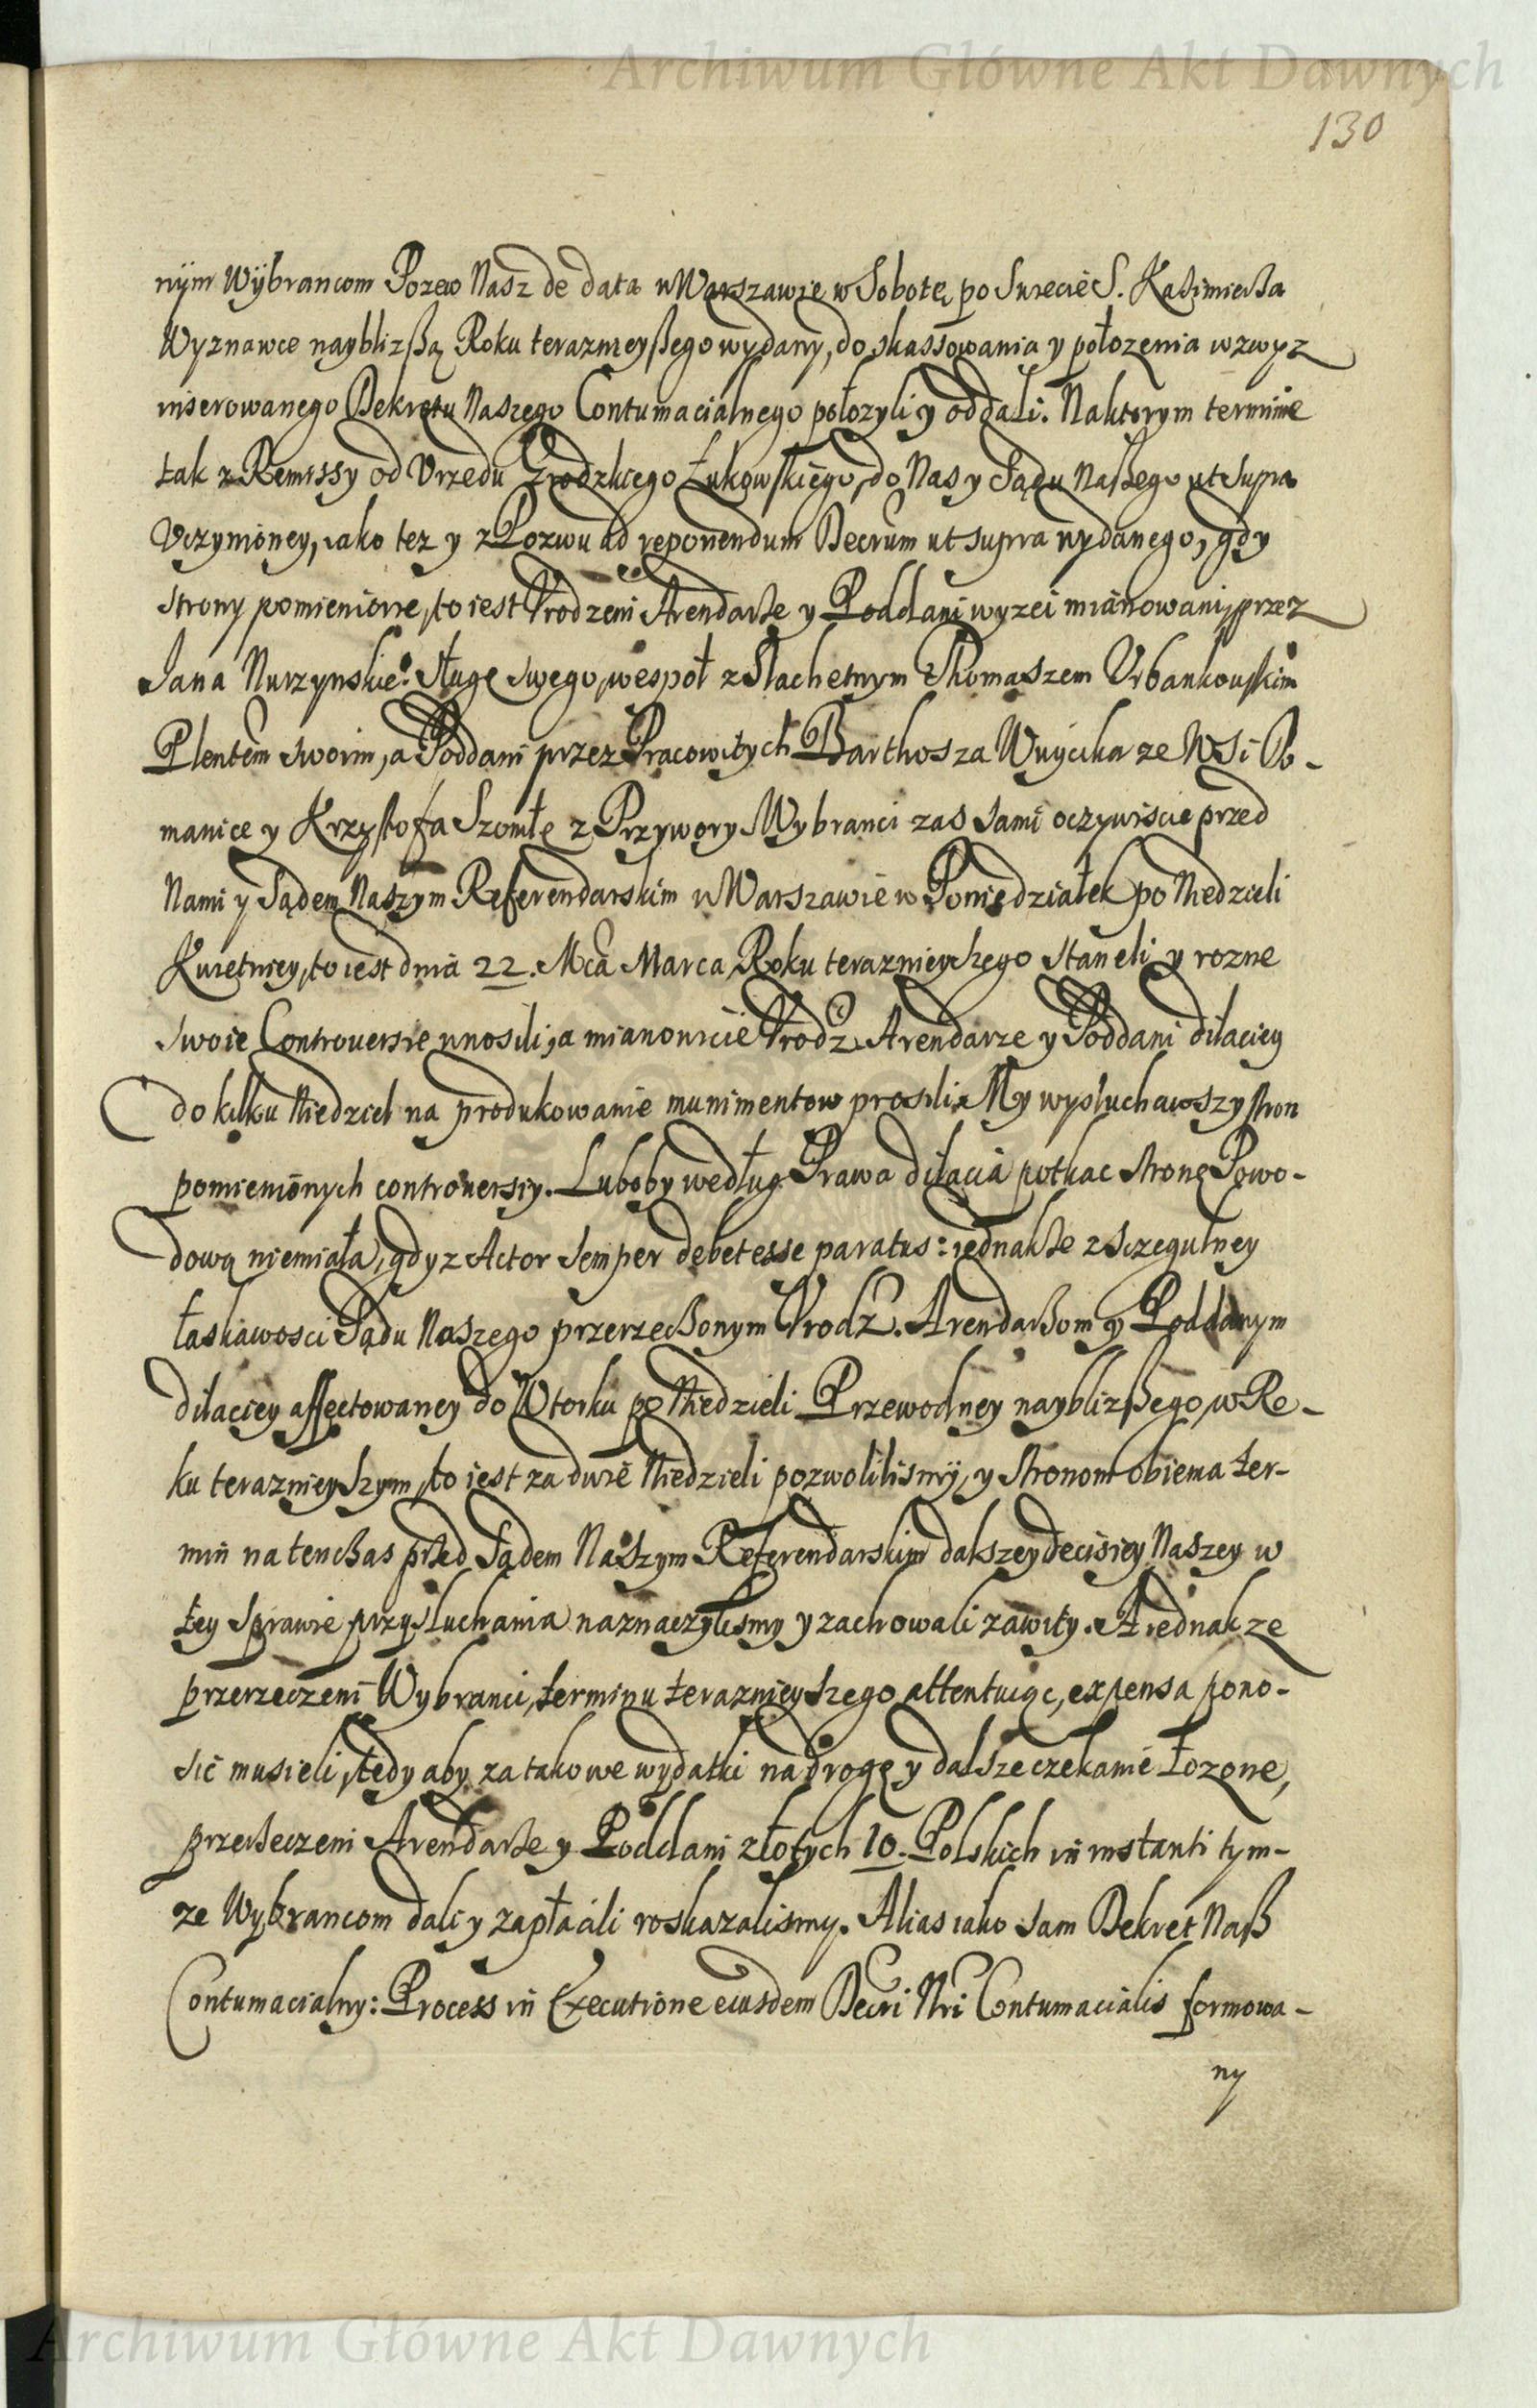 Archiwum Główne Akt Dawnych
130
nÿm Wÿbrancom Pozew Nasz de data w Warszawie w Sobotę po Swięcie S. Kaźimierza
Wyznawce naybliższą Roku teraznieyßego wydany, do skassowania y położenia wzwyz
inserowanego Dekretu Naszego Contumacialnego położyli y oddali. Naktorym terminie
tak z Remissy od Vrzędu Grodzkiego Łukowskiego, do Nas y Sądu Naßego ut supra
Vczynioney, iako tez y z Pozwu ad reponendum Decrum ut supra wydanego, gdy
strony pomienione, to iest Vrodzeni Arendarze y Poddani wyzei mianowani, przez
Jana Nurzynskieo Sługę swego, wespoł z Slachetnym Thomaszem Vrbankowskim
Plentem swoim, a Poddani przez Pracowitych Barthosza Wuycika ze WSi Do-
manice y Krzysztofa Szomłę z Przywory Wybranci zas sami oczywiscie przed
Nami y Sądem Naszym Referendarskim w Warszawie w Poniedziałek po Niedzieli
Kwietniey, to iest dnia 22. Mca Marca Roku teraznieyszego staneli y rozne
swoie Controversie wnosili, a mianowicie Vrodz. Arendarze y Poddani dilaciey
do kilku Niedziel na produkowanie munimentow prosili. My wysłuchawszy stron
pomienionych controversiy. Luboby według Prawa dilacia potkac stronę Powo-
dową niemiała, gdyz Actor semper debet esse paratus: iednakze z sczegulney
łaskawosci Sądu Naszego przerzeczonym Vrodz. Arendarzom y Poddanym
dilaciey affectowaney do Wtorku po Niedzieli Przewodney naybliższego, w Ro-
ku teraznieyszym, to iest za dwie Niedzieli pozwolilismÿ, y stronom obiema ter-
min natenczas przed Sądem Naszym Referendarskim dalszey decisiey Naszey w
tey sprawie przysłuchania naznaczylismy y zachowali zawity. A iednak ze
przerzeczeni Wybranci, terminu teraznieyszego attentuiąc, expensa pono-
sić musieli, tedy aby za takowe wydatki na drogę y dalsze czekanie łozone,
przerzeczeni Arendarze y Poddani złotych 10. Polskich in instanti tym-
ze Wybrancom dali y zapłacili roskazalismy. Alias iako sam Dekret Naß
Contumacialny: Process in Executione eiusdem Decri Nri Contumacialis formowa-
ny
Archiwum Główne Akt Dawnych